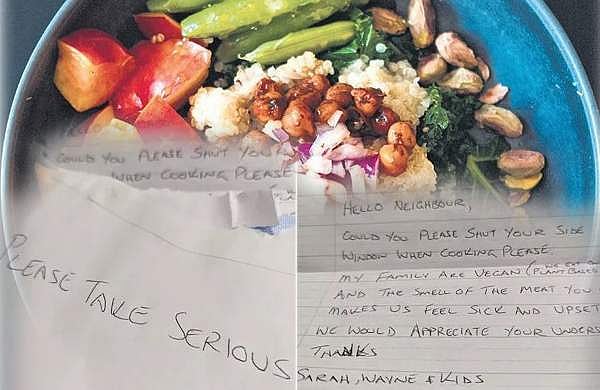 COULD YOU PLEASE SHUT YOU
WHEN COOKING PLEASE
PLEASE TAKE SERIOUS
HELLO NEIGHBOUR,
COULD YOU PLEASE SHUT YOUR SIDE
WINDOW WHEN COOKING PLEASE.
MY FAMILY ARE VEGAN (WE EAT ONLY
PLANT BASED
AND THE SMELL OF THE MEAT YOU
MAKES US FEEL SICK AND UPSET
WE WOULD APPRECIATE YOUR UNDERS
THANKS
SARAH, WAYNE & KIDS